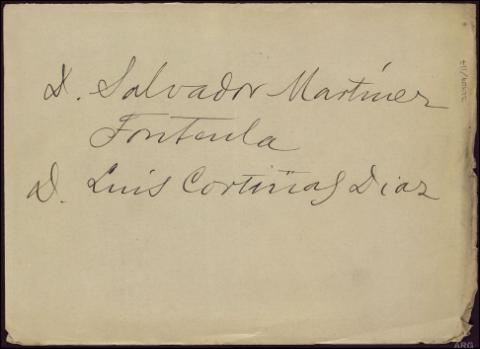 D. Salvador Martínez
Fontenla
D. Luis Cortiñas Diaz
ARG